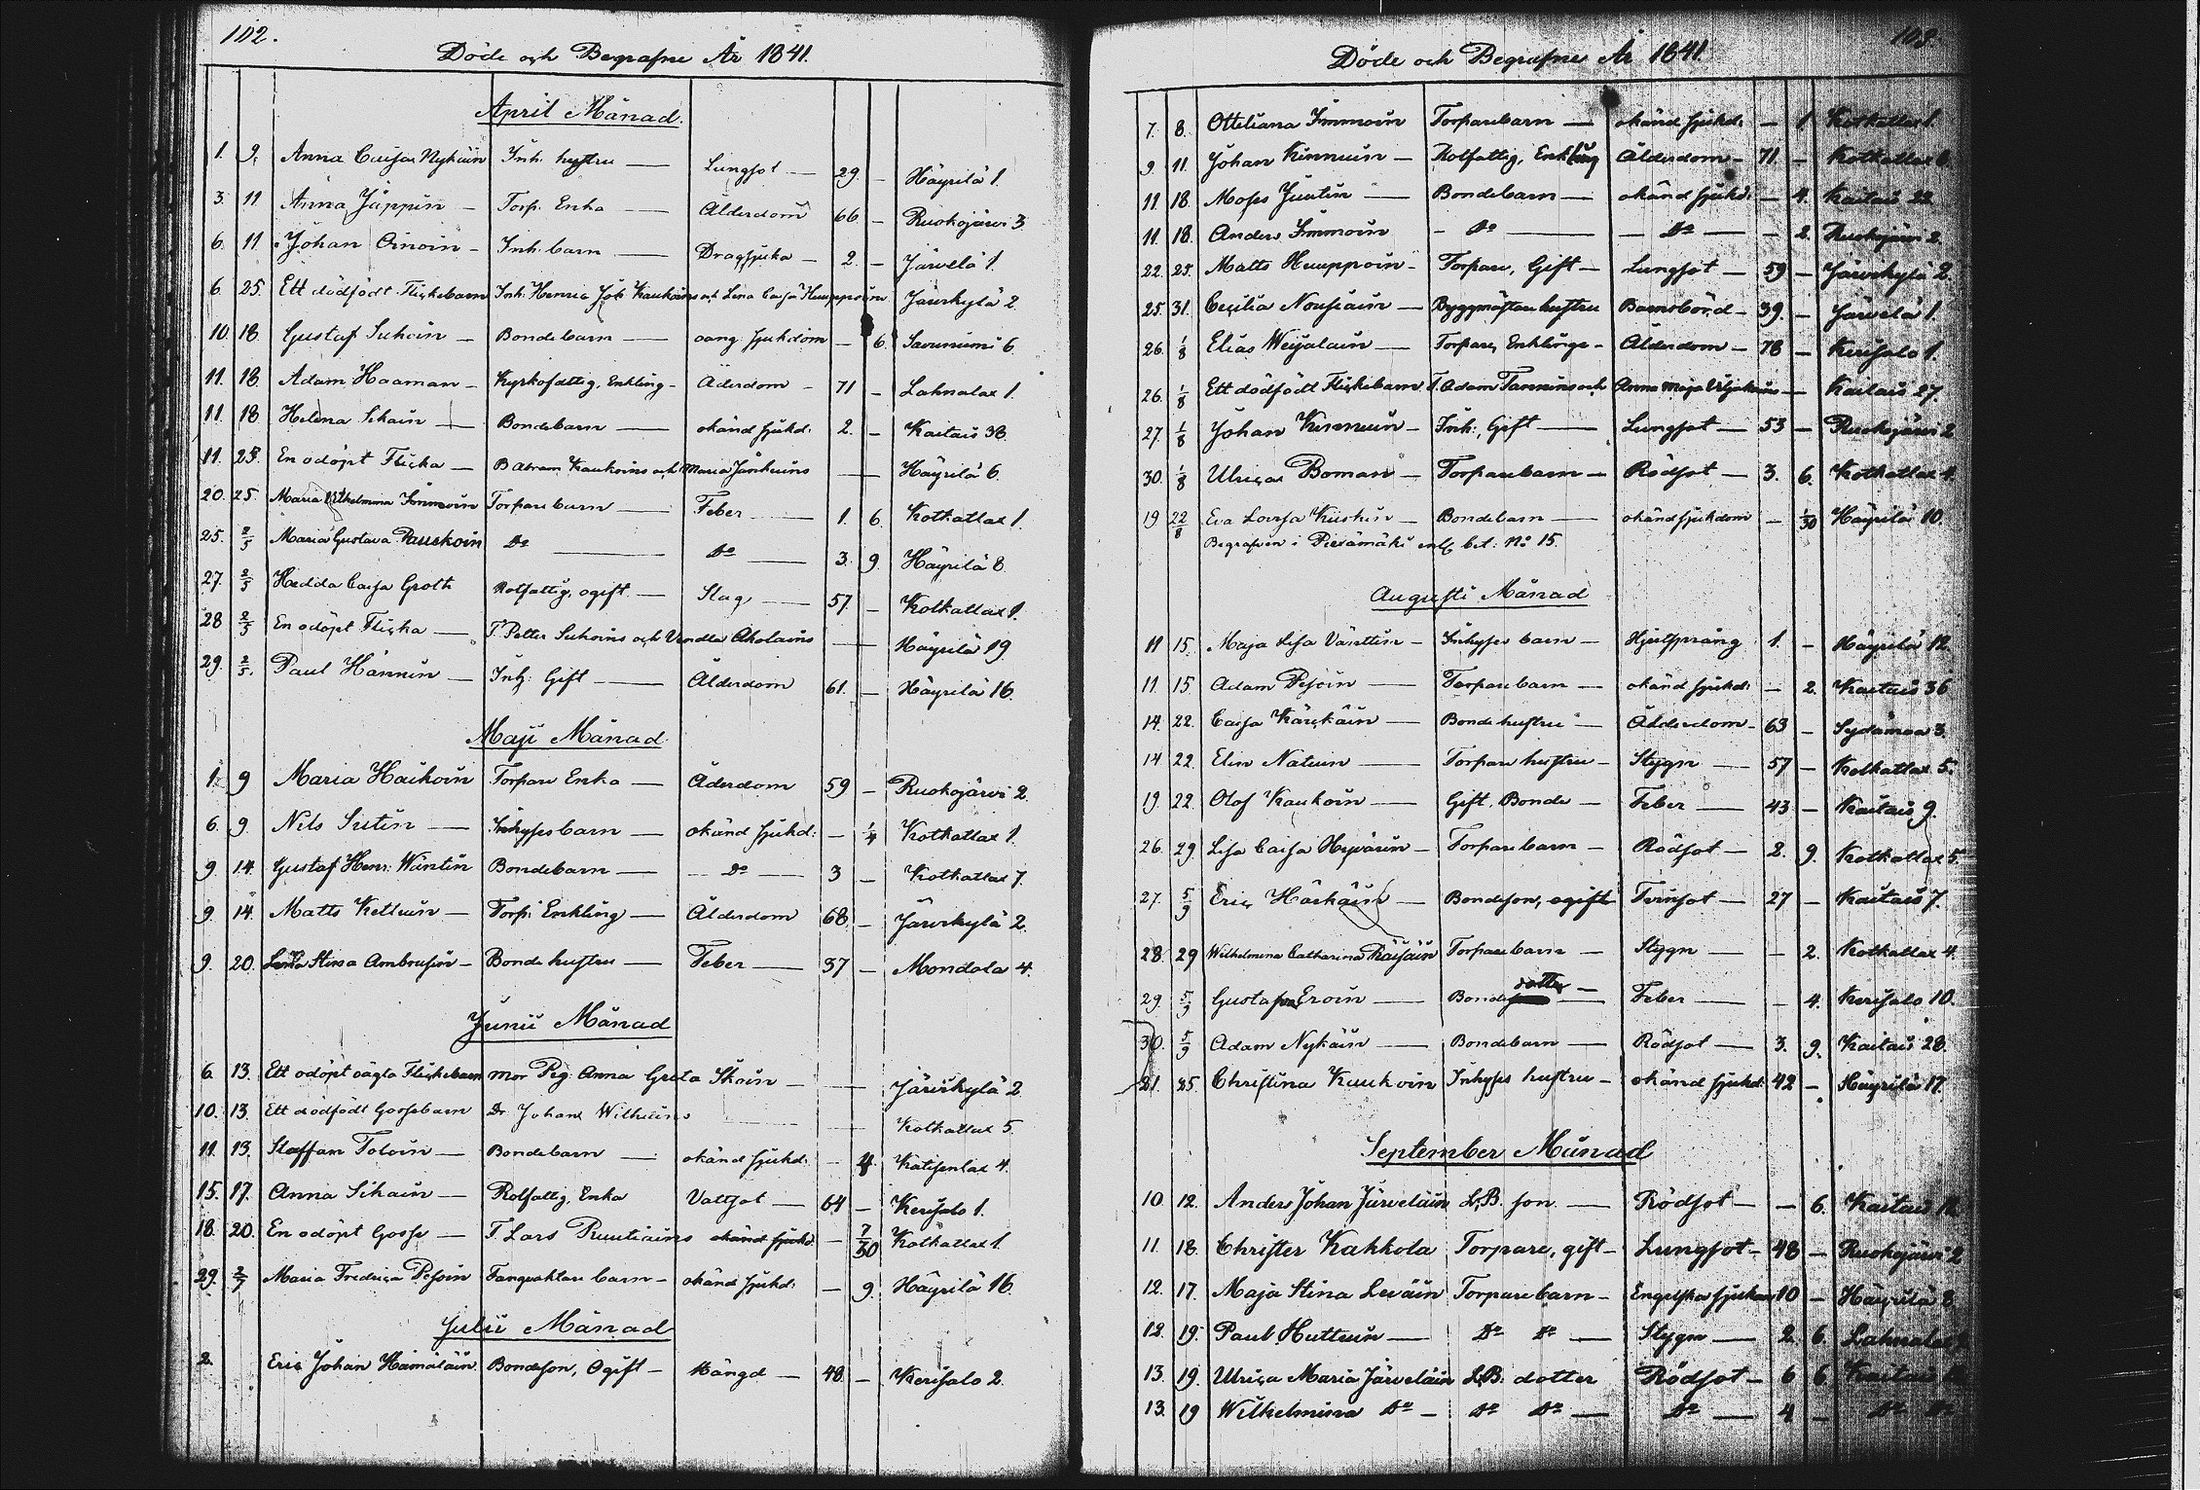 102.
Döde och Begrafne År 1841.
April Månad.
1. 9. Anna Caisa Nykäin Inh. hustru — Lungsot — 29. — Häyrilä 1.
3. 11 Anna Jäppin — Torp. Enka — Ålderdom 66 — Ruokojärvi 3
6. 11. Johan Oinoin — Inh. barn — Dragsjuka — 2. — Järvelä 1.
6. 25. Ett dödfödt Flickebarn Inh. Henric Joh. Kaukoins och Lena Caisa Huupponin Järvikylä 2
10. 18. Gustaf Suhoin — Bondebarn — oang. sjukdom — 6. Savuniemi 6.
11. 18. Adam Haaman — Kyrkofattig, Enkling — Ålderdom — 71 — Lahnalax 1.
11. 18 Helena Sikain — Bondebarn — okänd sjukd: 2. — Kaitais 38.
11. 25. En odöpt Flicka — B Abram Kaukoins och Maria Jänkeins — Häyrilä 6.
20. 25. Maria Wilhelmina Immoin Torpare barn — Feber — 1. 6. Kotkatlax 1.
25. 2/5 Maria Gustava Pauskoin Do — Do — 3. 9. Häyrilä 8
27. 2/5 Hedda Caisa Groth Rotfattig, ogift — Slag — 57. — Kotkatlax 1.
28 2/5 En odöpt Flicka — T. Petter Suhoins och Vendla Aholains — Häyrilä 19
29. 2/5. Paul Hännin — Inh: Gift — Ålderdom 61. — Häyrilä 16.
Maji Månad
1. 9 Maria Haikoin Torpare Enka — Ålderdom 59 — Ruokojärvi 2.
6. 9. Nils Sutin — Inhyses barn — okänd sjukd: — 1/4 Kotkatlax 1.
9 14. Gustaf Henr: Wäntin Bondebarn — Do — 3 — Kotkatlax 7.
9. 14. Matts Kettuin — Torp: Enkling — Ålderdom 68. — Järvikylä 2.
9. 20. Stina Ambrusin — Bonde hustru — Feber — 37 — Mondola 4.
Junii Månad
6. 13. Ett odöpt oägta Flickebarn mor Pig: Anna Greta Ikoin — Järvikylä 2
10. 13. Ett dödfödt Gossebarn Dr Johan Wilhelins Kotkatlax 5
11. 13. Staffan Toloin — Bondebarn — okänd sjukd: — Katisenlax 4.
15. 17. Anna Sikain — Rotfattig, Enka Vattsot — 64 — Kerisalo 1.
18. 20. En odöpt Gosse — T Lars Ruutiains okänd sjukd — 7/30 Kotkatlax 1.
29. 2/7 Maria Fredrica Pesoin Fångvaktare barn — okänd sjukd: — 9. Häyrilä 16.
Julii Månad
2. Eric Johan Hämäläin Bondeson, Ogift — Hängd — 48. — Kerisalo 2.
103.
Döde och Begrafne År 1841.
7. 8. Otteliana Immoin Torparebarn — okänd sjukd: — 1 Kotkatlax 1.
9 11. Johan Kinnuin — Rotfattig, Enkling Ålderdom — 71 — Kotkatlax 6.
11 18. Moses Juutin — Bondebarn — okänd sjukd: — 4. Kaitais 22
11. 18. Anders Immoin — Do — Do — 2. Ruokojärvi 2.
22. 25. Matts Huuppoin — Torpare, Gift — Lungsot — 59 — Järvikylä 2.
25. 31. Cecilia Nousiain — Byggmästare hustru Barnsbörd — 39. — Järvelä 1.
26. 1/8 Elias Weijalain — Torpare, Enkling — Ålderdom — 78 — Kerisalo 1.
26. 1/8 Ett dödfödt Flickebarn T. Adam Tanninens och Anna Maja Viljakains — Kaitais 27.
27. 1/8 Johan Kinnuin — Inh:, Gift — Lungsot — 53 — Ruokojärvi 2
30. 1/8 Ulrica Boman — Torparebarn — Rödsot — 3. 6. Kotkatlax 4.
19 22/8 Eva Lovisa Kiiskin — Bondebarn — okänd sjukdom — 1/30 Häyrilä 10.
Begrafven i Pieksämäki enl: bet: No 15.
Augusti Månad
11 15. Maja Lisa Vänttin — Inhyses barn — Hjertsprång 1. — Häyrilä 12
11. 15 Adam Pesoin — Torparebarn — okänd sjukd: — 2. Kaitais 36
14. 22. Caisa Kärckäin — Bonde hustru — Ålderdom — 63 — Sydänmaa 3.
14 22. Elin Natuin — Torpare hustru — Stygn — 57 — Kotkatlax 5.
19. 22. Olof Kaukoin — Gift. Bonde — Feber — 43 — Kaitais 9.
26. 29 Lisa Caisa Hyvärin — Torpare barn — Rödsot — 2. 9. Kotkatlax 5.
27. 5/9 Eric Härkäin — Bondeson, ogift Tvinsot — 27 — Kaitais 7.
28. 29 Wilhelmina Catharina Räisäin Torparebarn — Stygn — 2. Kotkatlax 4.
29. 5/9 Gustafva Eroin — Bonde dotter — Feber — 4. Kerisalo 10.
30. 5/9 Adam Nykäin — Bondebarn — Rödsot — 3. 9. Kaitais 28.
21. 25. Christina Kaukoin Inhyses hustru — okänd sjukd: 42 — Häyrilä 17.
September Månad
10. 12. Anders Johan Järveläin L.B. son — Rödsot — 6. Kaitais
11. 18. Christer Kakkola Torpare, gift — Lungsot — 48 — Ruokojärvi 2
12. 17. Maja Stina Leväin Torparebarn — Engelska sjukan 10 — Häyrilä 8
12. 19. Paul Huttuin — Do Do — Stygn — 2. 6. Lahnalax
13. 19. Ulrica Maria Järveläin L.B. dotter Rödsot — 6 6. Kaitais
13. 19 Wilhelmina Do — Do Do — Do — 4 — Do Do